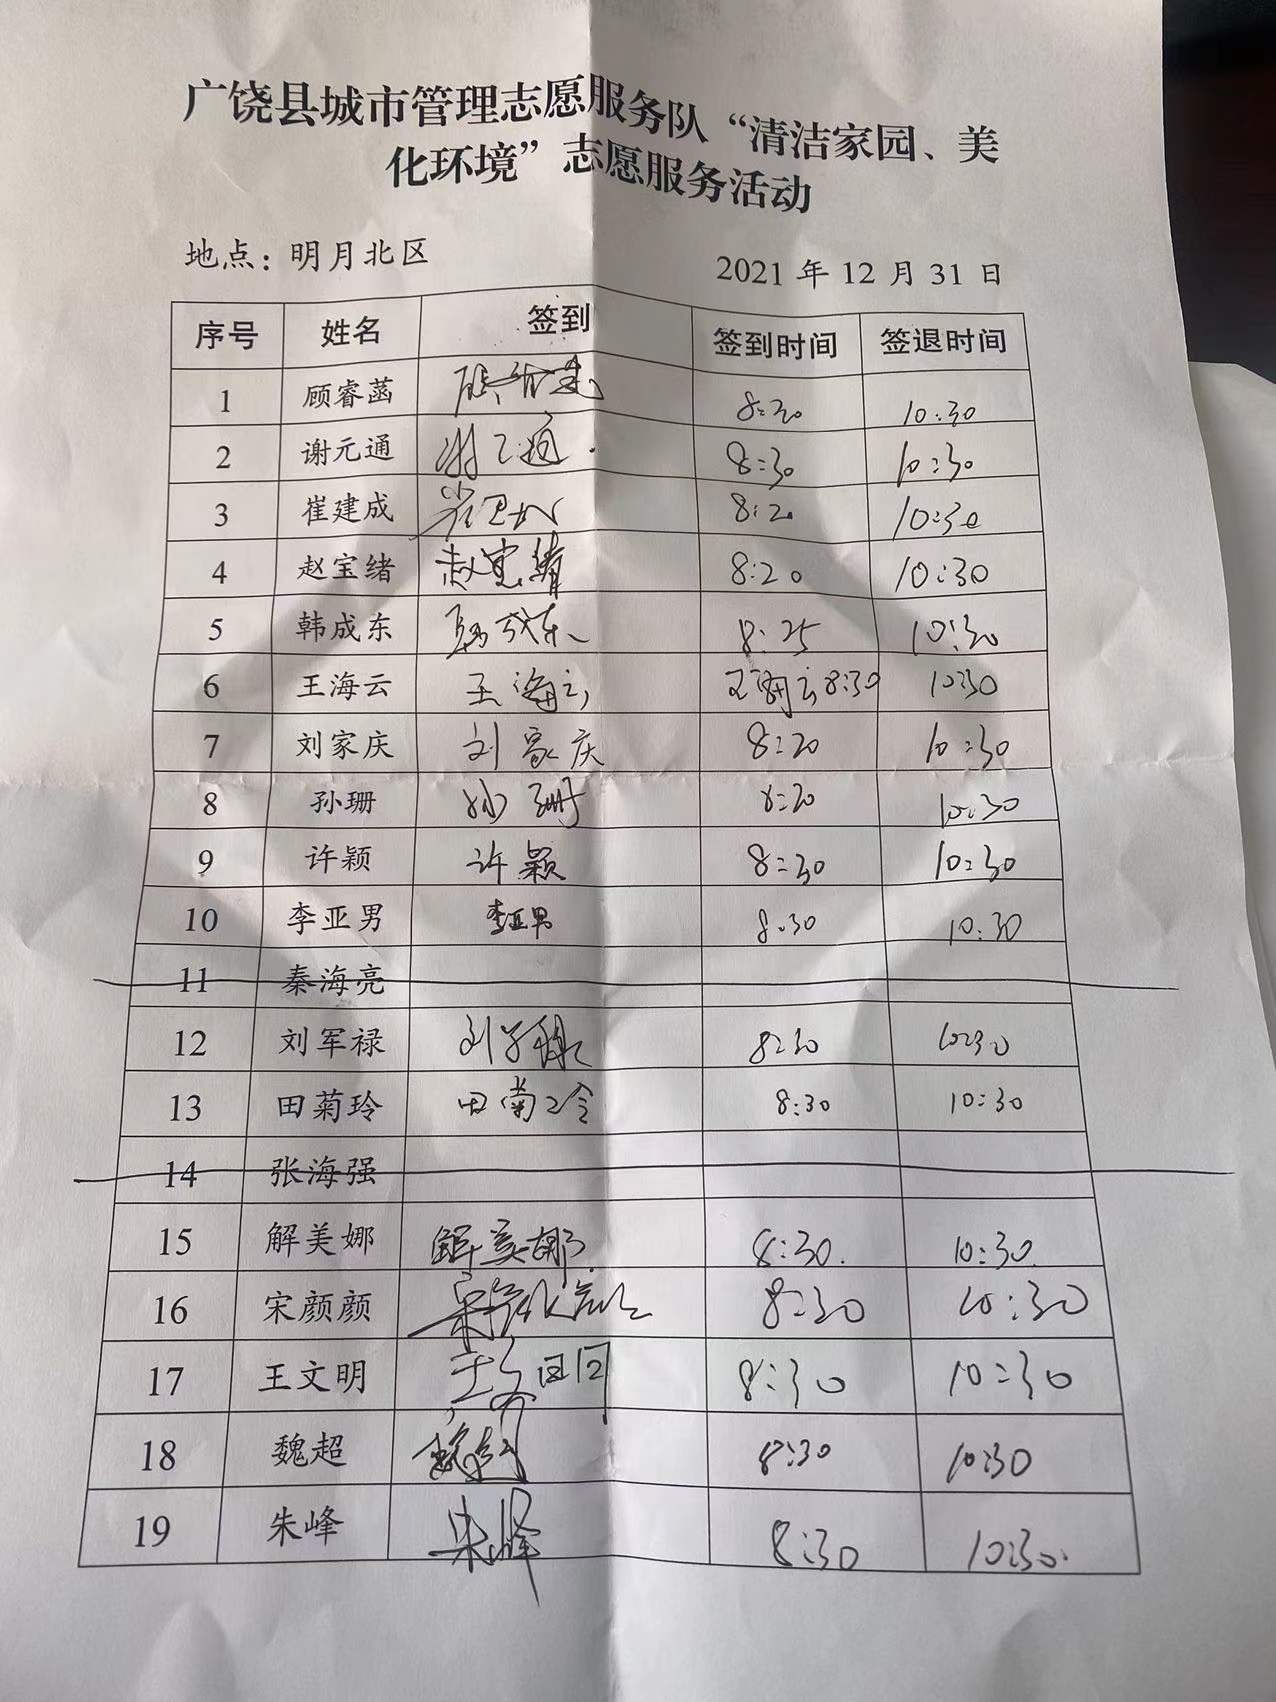 广饶县城市管理志愿服务队“清洁家园、美
化环境”志愿服务活动
地点：明月北区 2021年12月31日
序号 姓名 签到 签到时间 签退时间
1 顾睿菡 8:20 10:30
2 谢元通 谢元通 8:30 10:30
3 崔建成 崔建成 8:20 10:30
4 赵宝绪 赵宝绪 8:20 10:30
5 韩成东 韩成东 8:25 10:30
6 王海云 王海云 王海云 8:30 10:30
7 刘家庆 刘家庆 8:20 10:30
8 孙珊 孙珊 8:20 10:30
9 许颖 许颖 8:30 10:30
10 李亚男 李亚男 8:30 10:30
11 秦海亮
12 刘军禄 刘军禄 8:30 10:30
13 田菊玲 田菊玲 8:30 10:30
14 张海强
15 解美娜 解美娜 8:30 10:30
16 宋颜颜 宋颜颜 8:30 10:30
17 王文明 王文明 8:30 10:30
18 魏超 魏超 8:30 10:30
19 朱峰 朱峰 8:30 10:30